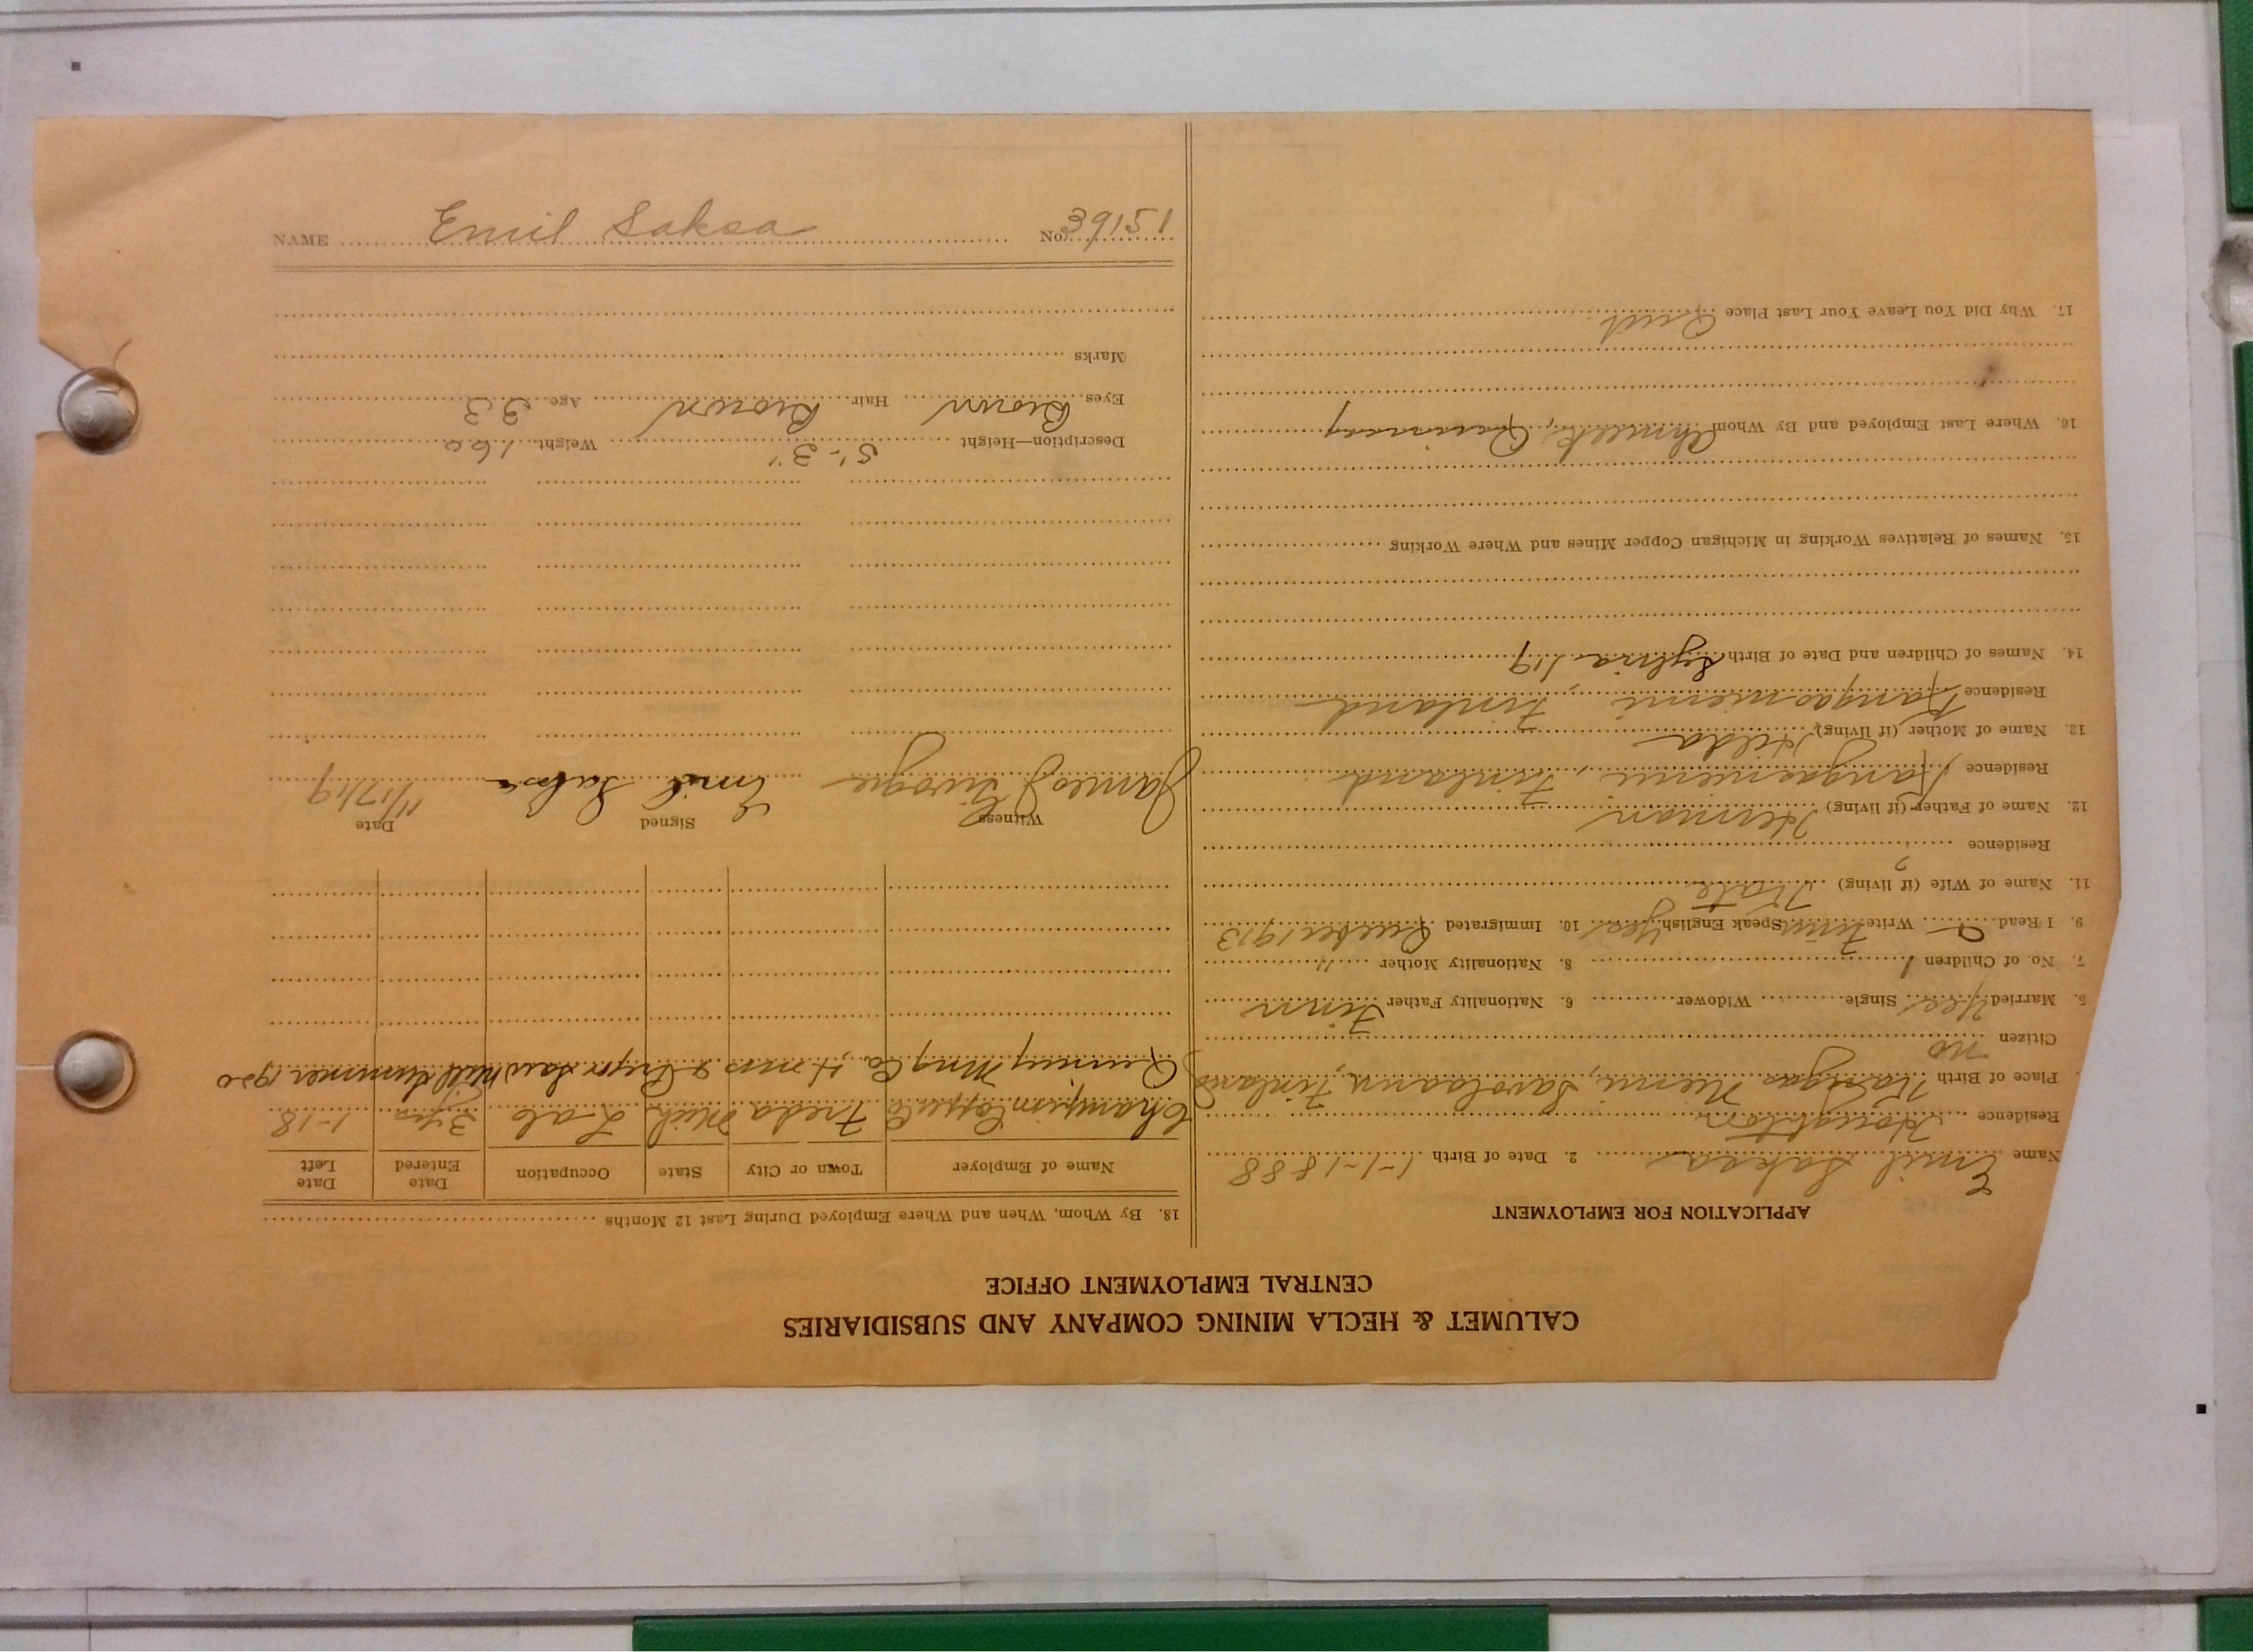 CALUMET & HECLA MINING COMPANY AND SUBSIDIARIES
CENTRAL EMPLOYMENT OFFICE
APPLICATION FOR EMPLOYMENT
Name Emil Saksa 2. Date of Birth 1-1-1888
Residence Houghton
Place of Birth Kangas Niemi, Savolaann, Finland
Citizen no
5. Married Yes Single Widower 6. Nationality Father Finn
7. No. of Children 1 8. Nationality Mother "
9. I Read Write Finn Speak English Yes 10. Immigrated 1913
11. Name of Wife (if living) Kate
Residence ?
12. Name of Father (if living) Herman
Residence Kangasniemi, Finland
13. Name of Mother (if living) Hilda
Residence Kangasniemi, Finland
14. Names of Children and Date of Birth Sylvia 1 19
15. Names of Relatives Working in Michigan Copper Mines and Where Working
16. Where Last Employed and By Whom Ahmeek, Quincy
17. Why Did You Leave Your Last Place Quit
18. By Whom, When and Where Employed During Last 12 Months
Name of Employer Town or City State Occupation Date Entered Date Left
Champion Copper Co Freda Mich Lab 3 yrs 1-18
Quincy Mng Co., Homes & Pryor Saw Mill Summer 1920
Witness Signed Date
James J Emil Saksa 11/17/19
Description—Height 5'-3" Weight 160
Eyes Brown Hair Brown Age 33
Marks
NAME Emil Saksa No. 39151